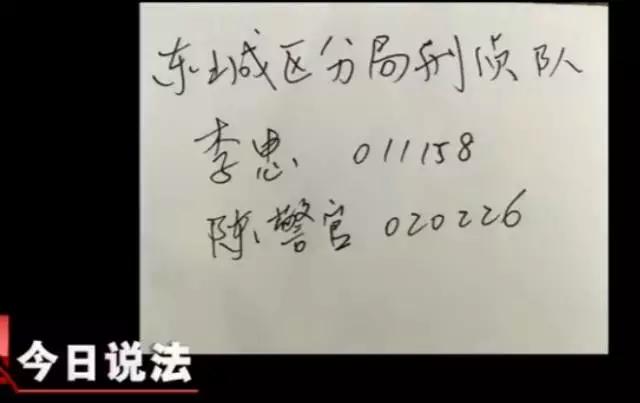 东城区分局刑侦队
李忠 011158
陈警官 020226
今日说法